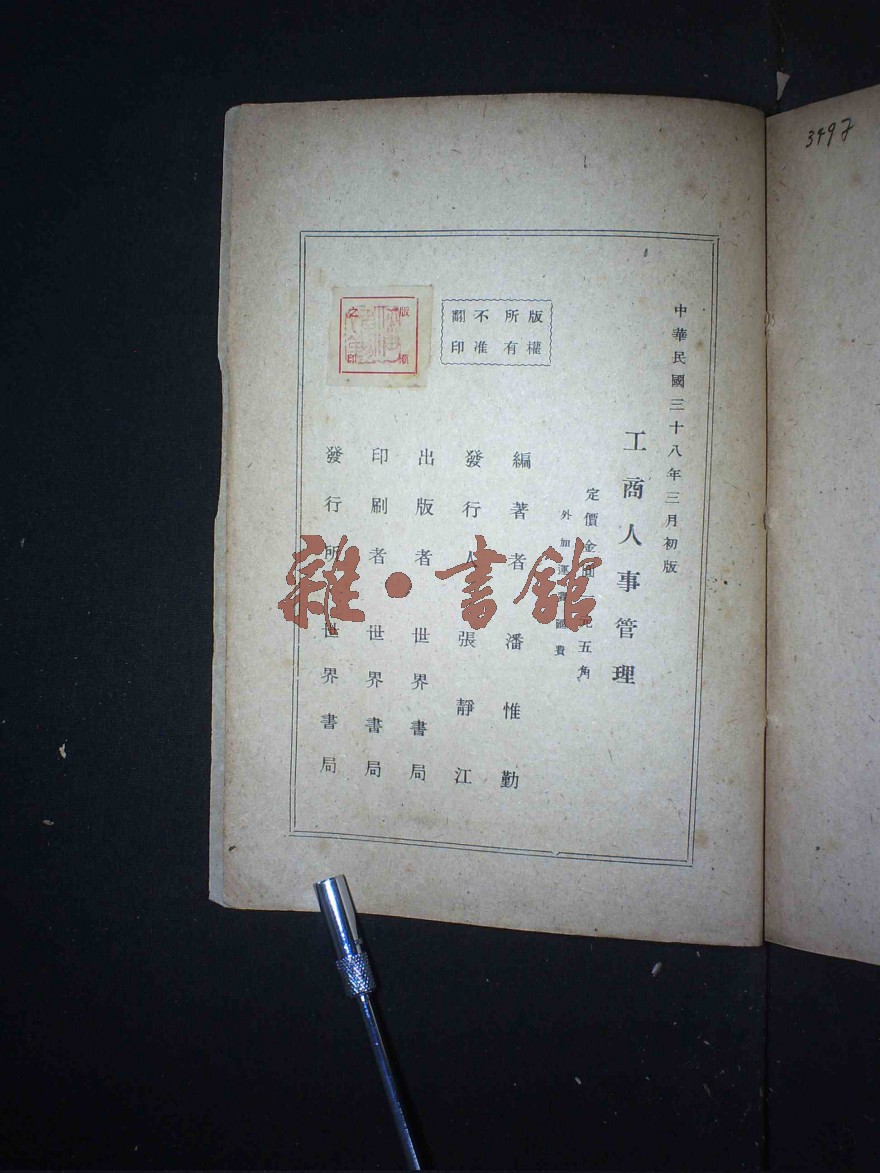 中華民國三十八年三月初版
工商人事管理
定價金圓一元五角
外加運費匯費
編著者 潘惟勤
發行人 張靜江
出版者 世界書局
印刷者 世界書局
發行所 世界書局
版權
所有
不准
翻印
版權
之印
雜·書館